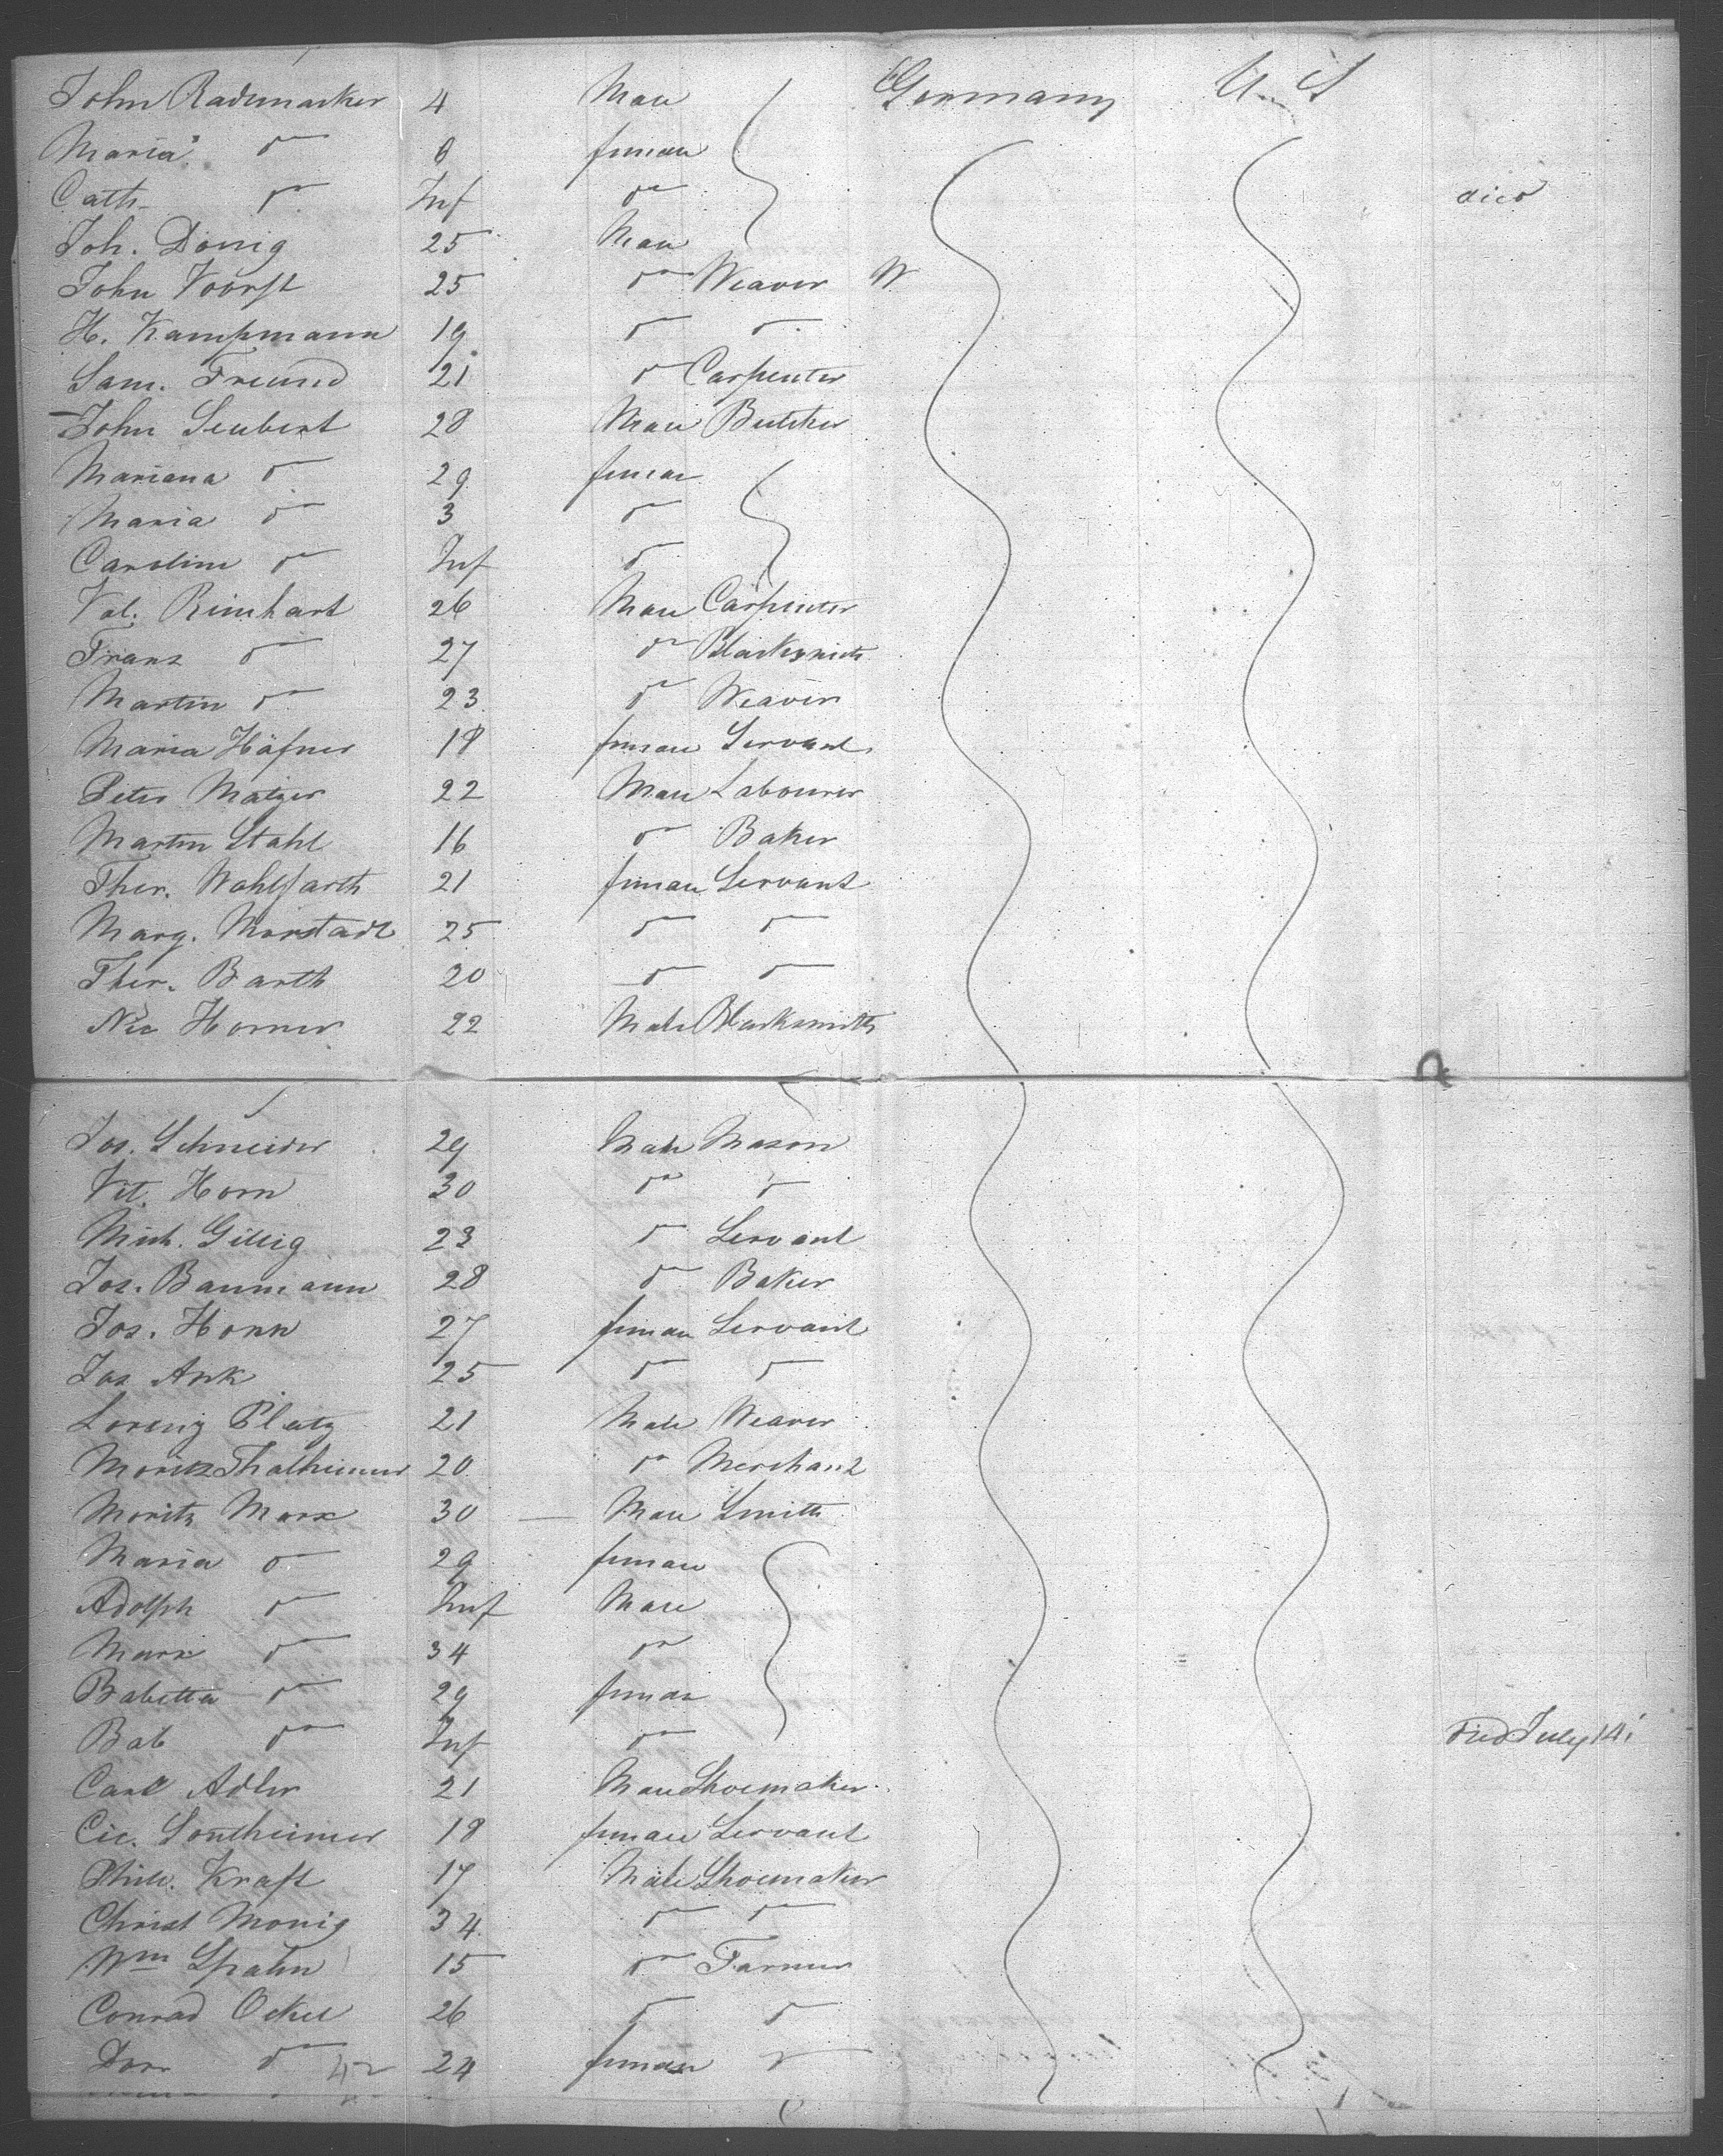 John Rademacker 4 Male Germany U.S
Maria do 6 female
Cath. do Inf do died
Joh. Dönig 25 Male
John Voorst 25 do Weaver
H. Kampmann 19 do do
Sam. Freund 21 do Carpenter
John Seubert 28 Male Butcher
Mariana do 29 female
Maria do 3 do
Caroline do Inf do
Val. Reinhart 26 Male Carpenter
Franz do 27 do Blacksmith
Martin do 23 do Weaver
Maria Häfner 18 female Servant
Peter Matzer 22 Male Labourer
Martin Stahl 16 do Baker
Ther. Wohlfarth 21 female Servant
Marg. Morstadt 25 do do
Ther. Barth 20 do do
Nic Horner 22 Male Blacksmith
Jos. Schneider 29 Male Mason
Vit. Horn 30 do do
Mich. Gillig 23 do Servant
Jos. Baumann 28 do Baker
Jos. Honn 27 female Servant
Jos Ank 25 do do
Lorenz Platz 21 Male Weaver
Moritz Thalheimer 20 do Merchant
Moritz Marx 30 Male Smith
Maria do 29 female
Adolph do Inf Male
Marx do 34 do
Babetta do 29 female
Bab do Inf do Died July 14
Carl Adler 21 Male Shoemaker
Cic. Sontheimer 18 female Servant
Phil. Kraft 17 Male Shoemaker
Christ Monig 34 do do
Wm Spahn 15 do Farmer
Conrad Ockel 26 do do
Dor do 24 female do
42